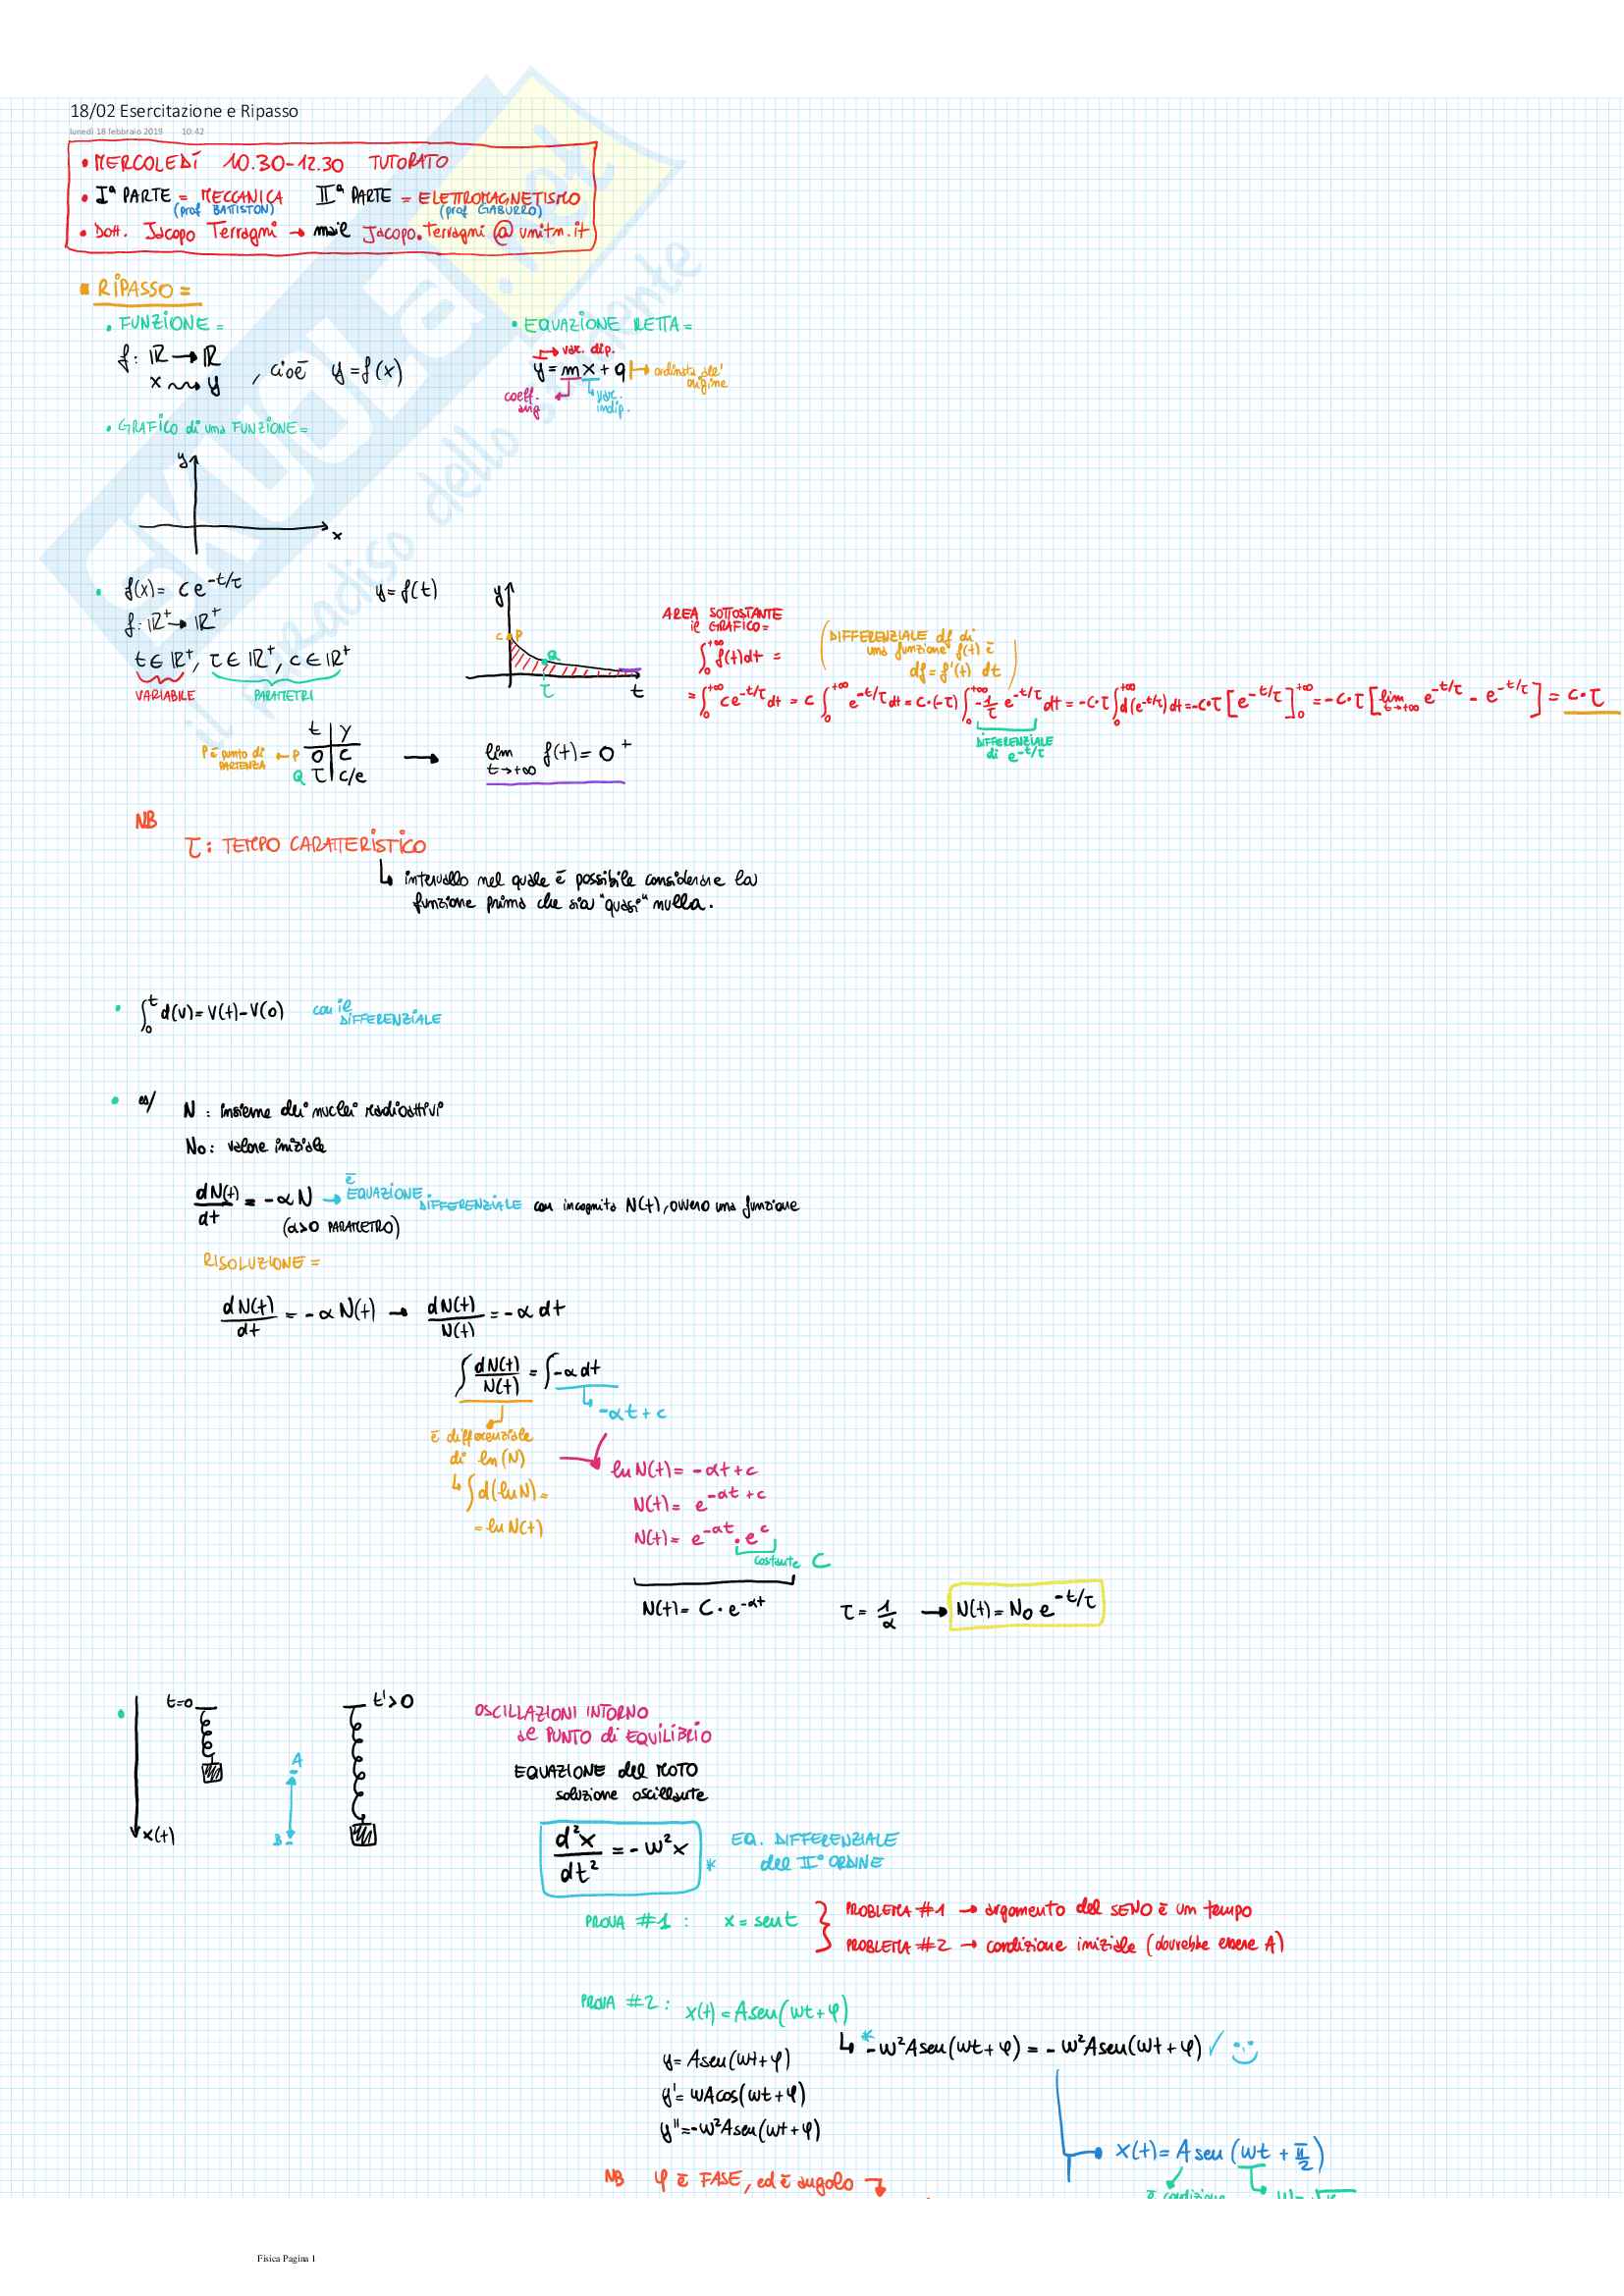 18/02 Esercitazione e Ripasso
lunedì 18 febbraio 2019 10:42
• MERCOLEDÍ 10.30-12.30 TUTORATO
• Iª PARTE = MECCANICA IIª PARTE = ELETTROMAGNETISMO
(prof BATTISTON) (prof GABURRO)
• Dott. Jacopo Terragni → mail Jacopo.Terragni @ unitn.it
SKUOLA.net
il paradiso dello studente
RIPASSO =
• FUNZIONE =
f: ℝ → ℝ
x ⇝ y , cioè y = f(x)
• EQUAZIONE RETTA =
var. dip.
y = mx + q → ordinata all'origine
coeff. ang
var. indip.
• GRAFICO di una FUNZIONE =
y
x
• f(x) = c e^-t/τ y = f(t)
f: ℝ⁺ → ℝ⁺
t ∈ ℝ⁺, τ ∈ ℝ⁺, c ∈ ℝ⁺
VARIABILE PARAMETRI
y
c P
Q
τ t
AREA SOTTOSTANTE
il GRAFICO =
∫₀^+∞ f(t)dt =
(DIFFERENZIALE df di
una funzione f(t) è
df = f'(t) dt)
= ∫₀^+∞ c e^-t/τ dt = c ∫₀^+∞ e^-t/τ dt = c·(-τ) ∫₀^+∞ -1/τ e^-t/τ dt = -c·τ ∫₀^+∞ d(e^-t/τ) dt = -c·τ [e^-t/τ]₀^+∞ = -c·τ [lim t→+∞ e^-t/τ - e^-t/τ] = c·τ
DIFFERENZIALE
di e^-t/τ
t | y
P è punto di PARTENZA ← P 0 | c
Q τ | c/e
→ lim t→+∞ f(t) = 0⁺
NB
τ: TEMPO CARATTERISTICO
↳ intervallo nel quale è possibile considerare la
funzione prima che sia "quasi" nulla.
• ∫₀^t d(v) = V(t) - V(0) con il DIFFERENZIALE
• es/ N : insieme dei nuclei radioattivi
No : valore iniziale
dN(t)/dt = -αN → è EQUAZIONE DIFFERENZIALE con incognita N(t), ovvero una funzione
(α>0 PARAMETRO)
RISOLUZIONE =
dN(t)/dt = -αN(t) → dN(t)/N(t) = -α dt
∫ dN(t)/N(t) = ∫ -α dt
↳ -αt + c
è differenziale
di ln(N)
↳ ∫ d(ln N) =
= ln N(t)
ln N(t) = -αt + c
N(t) = e^-αt + c
N(t) = e^-αt · e^c
costante C
N(t) = C · e^-αt τ = 1/α → N(t) = N₀ e^-t/τ
• t=0 t'>0
A
B
x(t)
OSCILLAZIONI INTORNO
al PUNTO di EQUILIBRIO
EQUAZIONE del MOTO
soluzione oscillante
d²x/dt² = -w²x * EQ. DIFFERENZIALE
del II° ORDINE
PROVA #1 : x = sen t } PROBLEMA #1 → argomento del SENO è un tempo
PROBLEMA #2 → condizione iniziale (dovrebbe essere A)
PROVA #2 : x(t) = A sen(wt + φ)
↳ * -w²A sen(wt + φ) = -w²A sen(wt + φ) ✓
y = A sen(wt + φ)
y' = wA cos(wt + φ)
y'' = -w²A sen(wt + φ)
x(t) = A sen (wt + π/2)
NB φ è FASE, ed è angolo
è condizione
Fisica Pagina 1